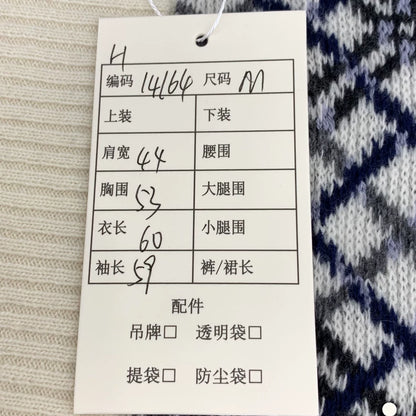 H
编码 14164 尺码 M
上装 下装
肩宽 44 腰围
胸围 53 大腿围
衣长 60 小腿围
袖长 59 裤/裙长
配件
吊牌□ 透明袋□
提袋□ 防尘袋□